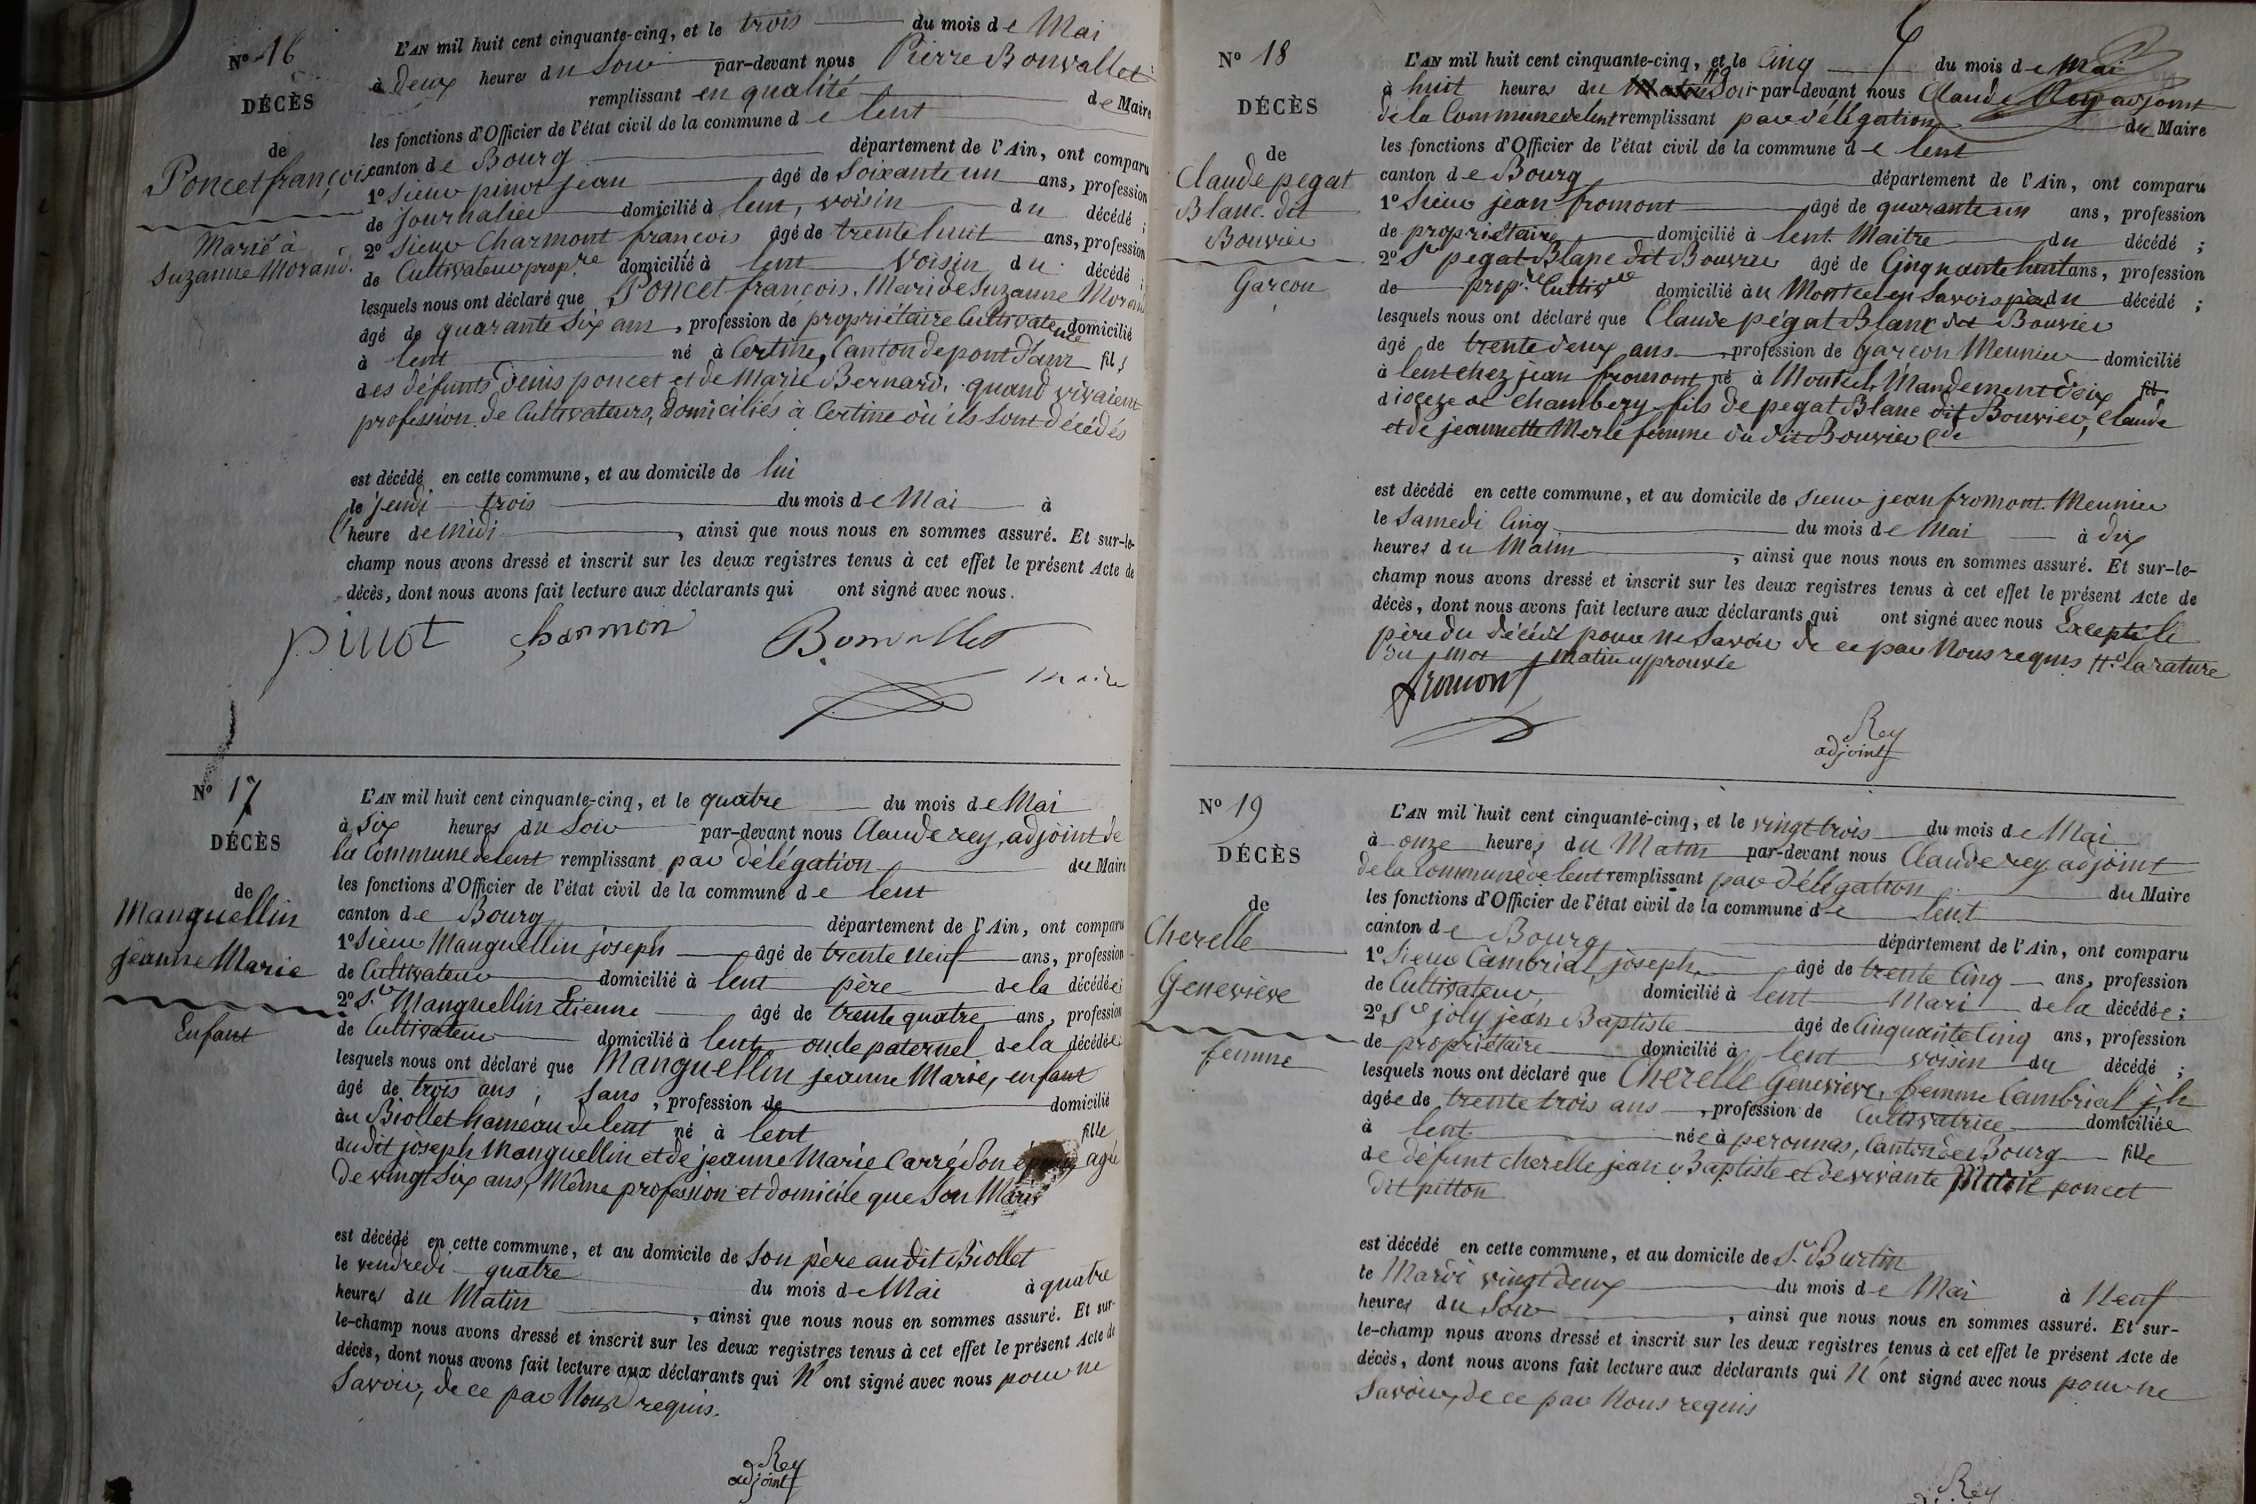 Nº 16
DÉCÈS
de
Poncet françois
Marié à
Suzanne Morand.
L'AN mil huit cent cinquante-cinq, et le trois du mois de Mai
à deux heures du Soir par-devant nous Pierre Bonvallet
remplissant en qualité de Maire
les fonctions d'Officier de l'état civil de la commune de lent
canton de Bourg département de l'Ain, ont comparu
1º Sieur pinot jean âgé de Soixante un ans, profession
de journalier domicilié à lent, voisin du décédé ;
2º Sieur Charmont francois âgé de trente huit ans, profession
de Cultivateur propre domicilié à lent voisin du décédé ;
lesquels nous ont déclaré que Poncet françois, Mari de Suzanne Morand
âgé de quarante Six ans, profession de propriétaire Cultivateur domicilié
à lent né à Certine, Canton de pont d'ain fils
des défunts Denis poncet et de Marie Bernard, quand vivaient
profession de Cultivateurs, domiciliés à Certine où ils Sont décédés
est décédé en cette commune, et au domicile de lui
le jeudi trois du mois de Mai à
l'heure de Midi, ainsi que nous nous en sommes assuré. Et sur-le-
champ nous avons dressé et inscrit sur les deux registres tenus à cet effet le présent Acte de
décès, dont nous avons fait lecture aux déclarants qui ont signé avec nous.
pinot charmon Bonvallet
maire
Nº 17
DÉCÈS
de
Manguellin
jeanne Marie
Enfant
L'AN mil huit cent cinquante-cinq, et le quatre du mois de Mai
à Six heures du Soir par-devant nous Claude rey, adjoint de
la Commune de lent remplissant par délégation du Maire
les fonctions d'Officier de l'état civil de la commune de lent
canton de Bourg département de l'Ain, ont comparu
1º Sieur Manguellin joseph âgé de trente neuf ans, profession
de Cultivateur domicilié à lent père de la décédée
2º Sr Manguellin Etienne âgé de trente quatre ans, profession
de Cultivateur domicilié à lent oncle paternel de la décédée
lesquels nous ont déclaré que Manguellin jeanne Marie, enfant
âgé de trois ans, Sans, profession de domicilié
au Biollet hameau de lent né à lent fille
dudit joseph Manguellin et de jeanne Marie Carré Son épouse agée
de vingt Six ans, Même profession et domicile que Son Mari
est décédé en cette commune, et au domicile de Son père audit Biollet
le vendredi quatre du mois de Mai à quatre
heures du Matin, ainsi que nous nous en sommes assuré. Et sur-
le-champ nous avons dressé et inscrit sur les deux registres tenus à cet effet le présent Acte de
décès, dont nous avons fait lecture aux déclarants qui N'ont signé avec nous pour ne
Savoir, de ce par Nous requis.
Rey
adjoint
Nº 18
DÉCÈS
de
Claude pegat
Blanc dit
Bouvier
Garcon
L'AN mil huit cent cinquante-cinq, et le Cinq du mois de Mai
à huit heures du Matin Soir par-devant nous Claude Rey adjoint
de la Commune de lent remplissant par délégation du Maire
les fonctions d'Officier de l'état civil de la commune de lent
canton de Bourg département de l'Ain, ont comparu
1º Sieur jean fromont âgé de quarante un ans, profession
de propriétaire domicilié à lent Maitre du décédé ;
2º Sr pegat Blanc dit Bouvier âgé de Cinquante huit ans, profession
de propre Cultivr domicilié au Montcel en Savoie père du décédé ;
lesquels nous ont déclaré que Claude pégat Blanc dit Bouvier
âgé de trente deux ans, profession de garcon Meunier domicilié
à lent chez jean fromont né à Montcel, Mandement d'aix fil
diocèze de Chambery fils de pegat Blanc dit Bouvier, Claude
et de jeannette Merle femme du dit Bouvier Cde
est décédé en cette commune, et au domicile de Sieur jean fromont Meunier
le Samedi Cinq du mois de Mai à dix
heures du Matin, ainsi que nous nous en sommes assuré. Et sur-le-
champ nous avons dressé et inscrit sur les deux registres tenus à cet effet le présent Acte de
décès, dont nous avons fait lecture aux déclarants qui ont signé avec nous Excepté le
père du décédé pour ne Savoir de ce par Nous requis la rature
du mot Matin approuvée
fromont
Rey
adjoint
Nº 19
DÉCÈS
de
Cherelle
Geneviève
femme
L'AN mil huit cent cinquante-cinq, et le vingt trois du mois de Mai
à onze heures du Matin par-devant nous Claude rey adjoint
de la Commune de lent remplissant par délégation du Maire
les fonctions d'Officier de l'état civil de la commune de lent
canton de Bourg département de l'Ain, ont comparu
1º Sieur Cambrial joseph âgé de trente Cinq ans, profession
de Cultivateur, domicilié à lent Mari de la décédée ;
2º Sr joly jean Baptiste âgé de Cinquante Cinq ans, profession
de propriétaire domicilié à lent voisin du décédé ;
lesquels nous ont déclaré que Cherelle Geneviève, femme Cambrial jh
âgée de trente trois ans, profession de Cultivatrice domiciliée
à lent née à peronnas, Canton de Bourg fille
de défunt cherelle jean Baptiste et de vivante Marie poncet
dit pitton
est décédé en cette commune, et au domicile de Sr Burtin
le Mardi vingt deux du mois de Mai à Neuf
heures du Soir, ainsi que nous nous en sommes assuré. Et sur-
le-champ nous avons dressé et inscrit sur les deux registres tenus à cet effet le présent Acte de
décès, dont nous avons fait lecture aux déclarants qui N'ont signé avec nous pour ne
Savoir, de ce par Nous requis
Rey